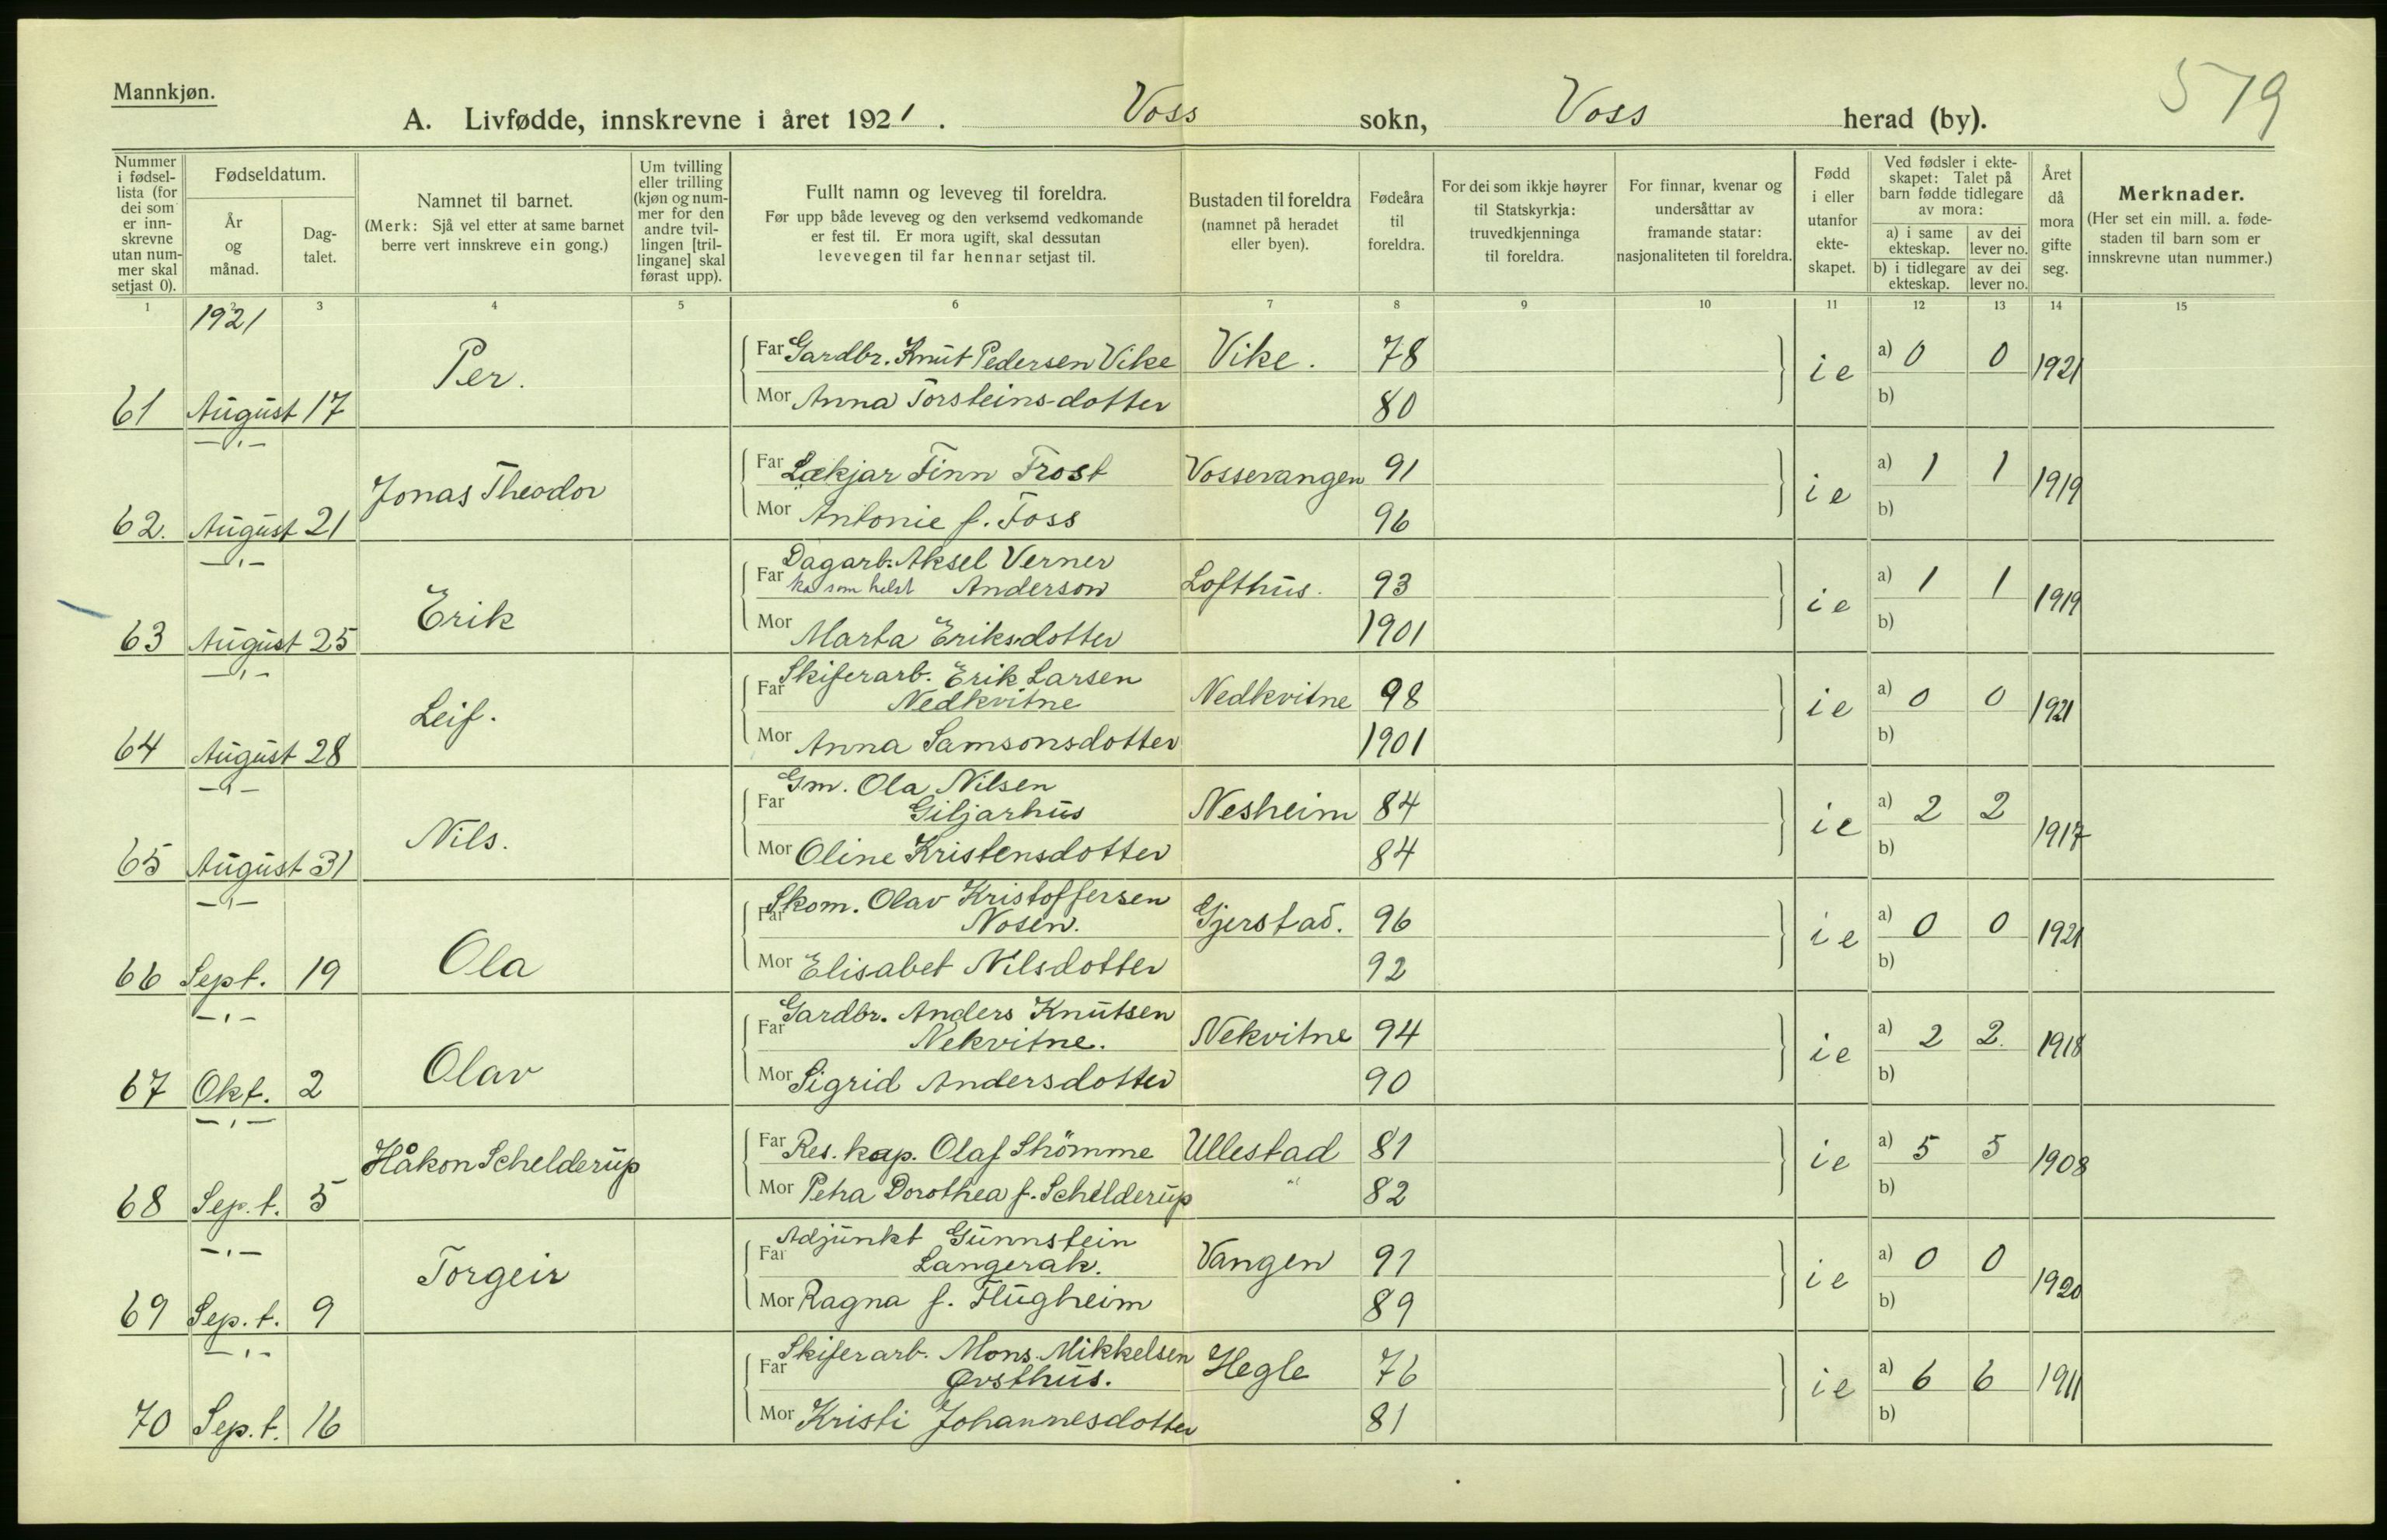 Mannkjøn.
579
A. Livfødde, innskrevne i året 1921. Voss sokn, Voss herad (by).
Nummer i fødsel-lista (for dei som er inn-skrevne utan num-mer skal setjast 0).
Fødseldatum.
År og månad.
Dag-talet.
Namnet til barnet.
(Merk: Sjå vel etter at same barnet berre vert innskreve ein gong.)
Um tvilling eller trilling (kjøn og num-mer for den andre tvil-lingen [tril-lingane] skal førast upp).
Fullt namn og leveveg til foreldra.
Før upp både leveveg og den verksemd vedkomande er fest til. Er mora ugift, skal dessutan levevegen til far hennar setjast til.
Bustaden til foreldra (namnet på heradet eller byen).
Fødeåra til foreldra.
For dei som ikkje høyrer til Statskyrkja: truvedkjenninga til foreldra.
For finnar, kvenar og undersåttar av framande statar: nasjonaliteten til foreldra.
Fødd i eller utanfor ekte-skapet.
Ved fødsler i ekte-skapet: Talet på barn fødde tidlegare av mora:
a) i same ekteskap. av dei lever no.
b) i tidlegare ekteskap. av dei lever no.
Året då mora gifte seg.
Merknader.
(Her set ein mill. a. føde-staden til barn som er innskrevne utan nummer.)
1 2 3 4 5 6 7 8 9 10 11 12 13 14 15
1921
Per. Far Gardbr. Knut Pedersen Vike Vike. 78 ie a) 0 0 1921
61 August 17 Mor Anna Torsteinsdotter 80 b)
—"—
Jonas Theodor Far Lækjar Finn Trost Vossevangen 91 ie a) 1 1 1919
62. August 21 Mor Antonie f. Foss 96 b)
—"—
Dagarb. Aksel Verner
Erik Far ka som helst Anderson Lofthus. 93 ie a) 1 1 1919
63 August 25 Mor Marta Eriksdotter 1901 b)
—"—
Skiferarb. Erik Larsen
Leif. Far Nedkvitne Nedkvitne 98 ie a) 0 0 1921
64 August 28 Mor Anna Samsonsdotter 1901 b)
—"—
Gm. Ola Nilsen
Nils. Far Giljarhus Nesheim 84 ie a) 2 2 1917
65 August 31 Mor Oline Kristensdotter 84 b)
—"—
Skom. Olav Kristoffersen
Ola Far Nosen. Gjerstad. 96 ie a) 0 0 1921
66 Sept. 19 Mor Elisabet Nilsdotter 92 b)
—"—
Gardbr. Anders Knutsen
Olav Far Nekvitne. Nekvitne 94 ie a) 2 2. 1918
67 Okt. 2 Mor Sigrid Andersdotter 90 b)
—"—
Håkon Schelderup Far Res. kap. Olaf Strömme Ullestad 81 ie a) 5 5 1908
68 Sep.t. 5 Mor Petra Dorothea f. Schelderup " 82 b)
—"—
Adjunkt Gunnstein
Torgeir Far Langerak. Vangen 91 ie a) 0 0 1920
69 Sep.t. 9 Mor Ragna f. Flugheim 89 b)
—"—
Skiferarb. Mons Mikkelsen
Far Ørsthus. Hegle 76 ie a) 6 6 1911
70 Sep.t. 16 Mor Kristi Johannesdotter 81 b)